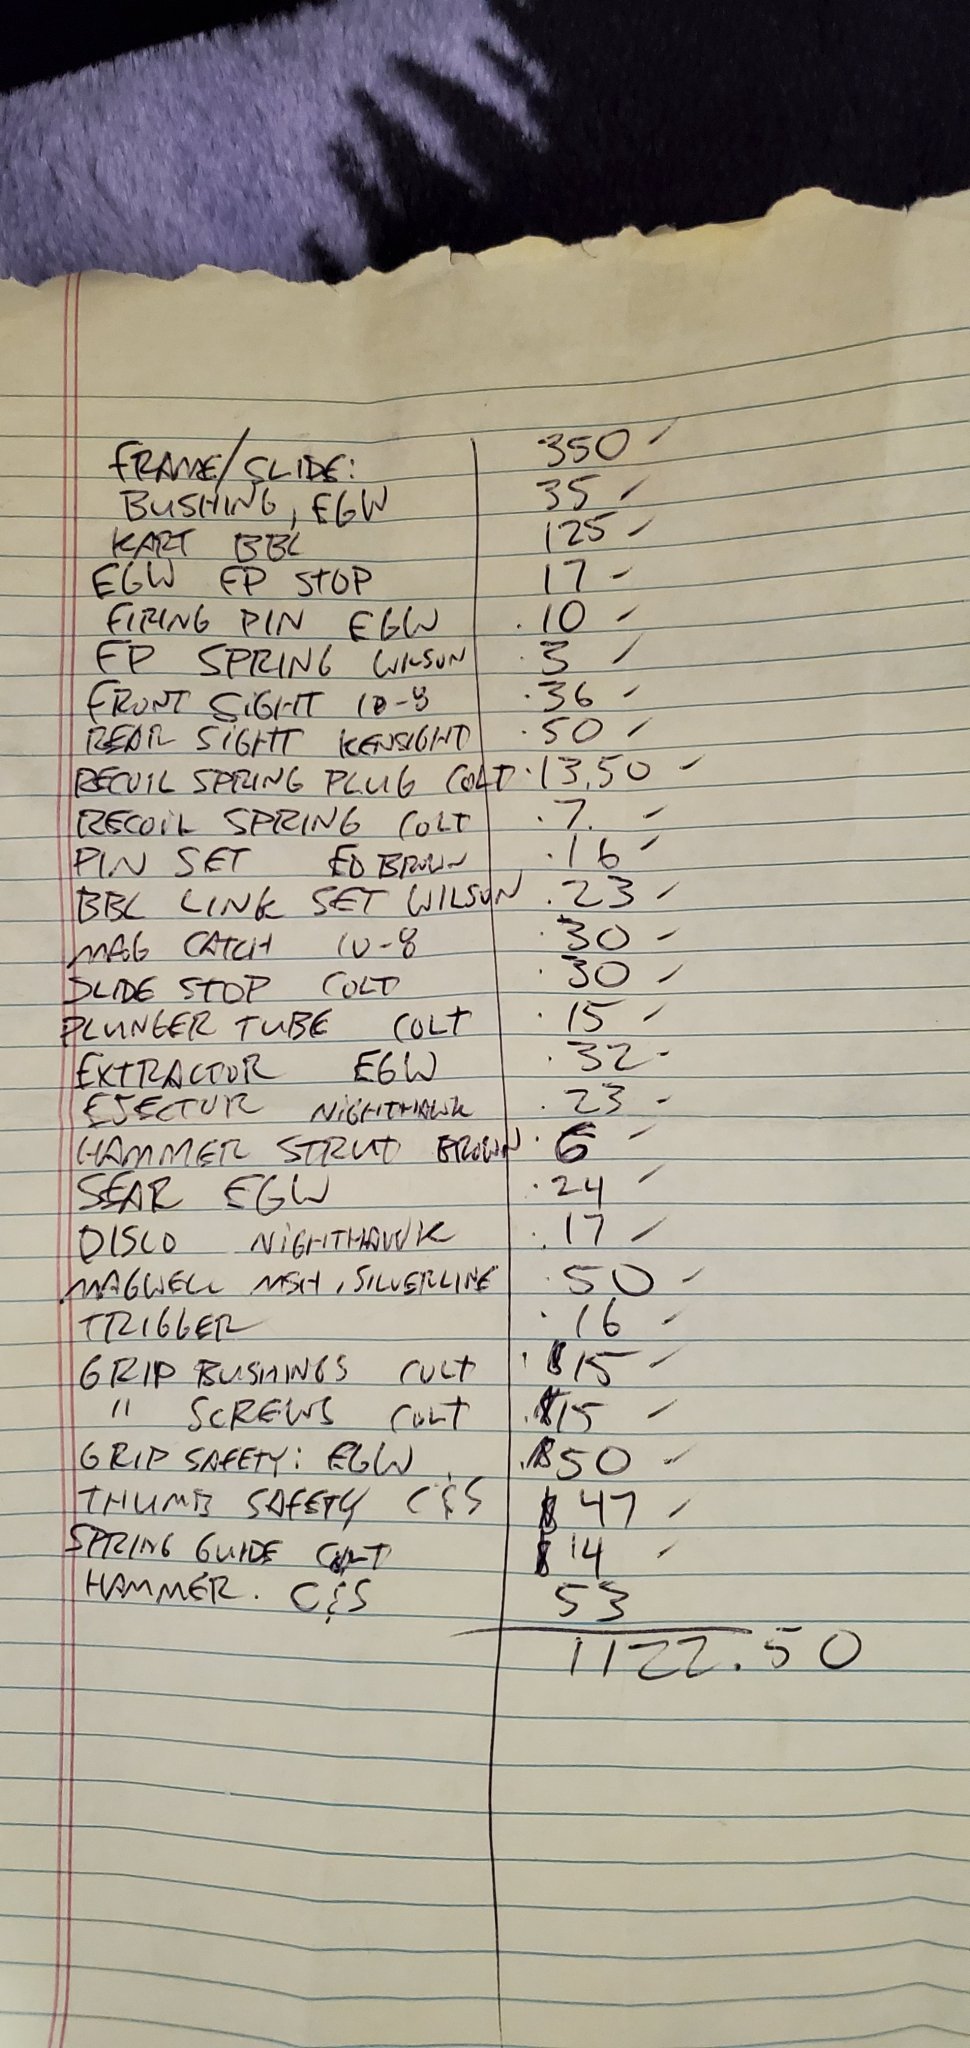 FRAME/SLIDE: 350
BUSHING, EGW 35
KART BBL 125
EGW FP STOP 17
FIRING PIN EGW 10
FP SPRING WILSON 3
FRONT SIGHT 10-8 36
REAR SIGHT KENSIGHT 50
RECOIL SPRING PLUG COLT 13.50
RECOIL SPRING COLT 7.
PIN SET ED BROWN 16
BBL LINK SET WILSON 23
MAG CATCH 10-8 30
SLIDE STOP COLT 30
PLUNGER TUBE COLT 15
EXTRACTOR EGW 32
EJECTOR NIGHTHAWK 23
HAMMER STRUT BROWN 6
SEAR EGW 24
DISCO NIGHTHAWK 17
MAGWELL MSH, SILVERLINE 50
TRIGGER 16
GRIP BUSHINGS COLT $15
" SCREWS COLT $15
GRIP SAFETY: EGW $50
THUMB SAFETY C&S $47
SPRING GUIDE COLT $14
HAMMER. C&S 53
1122.50